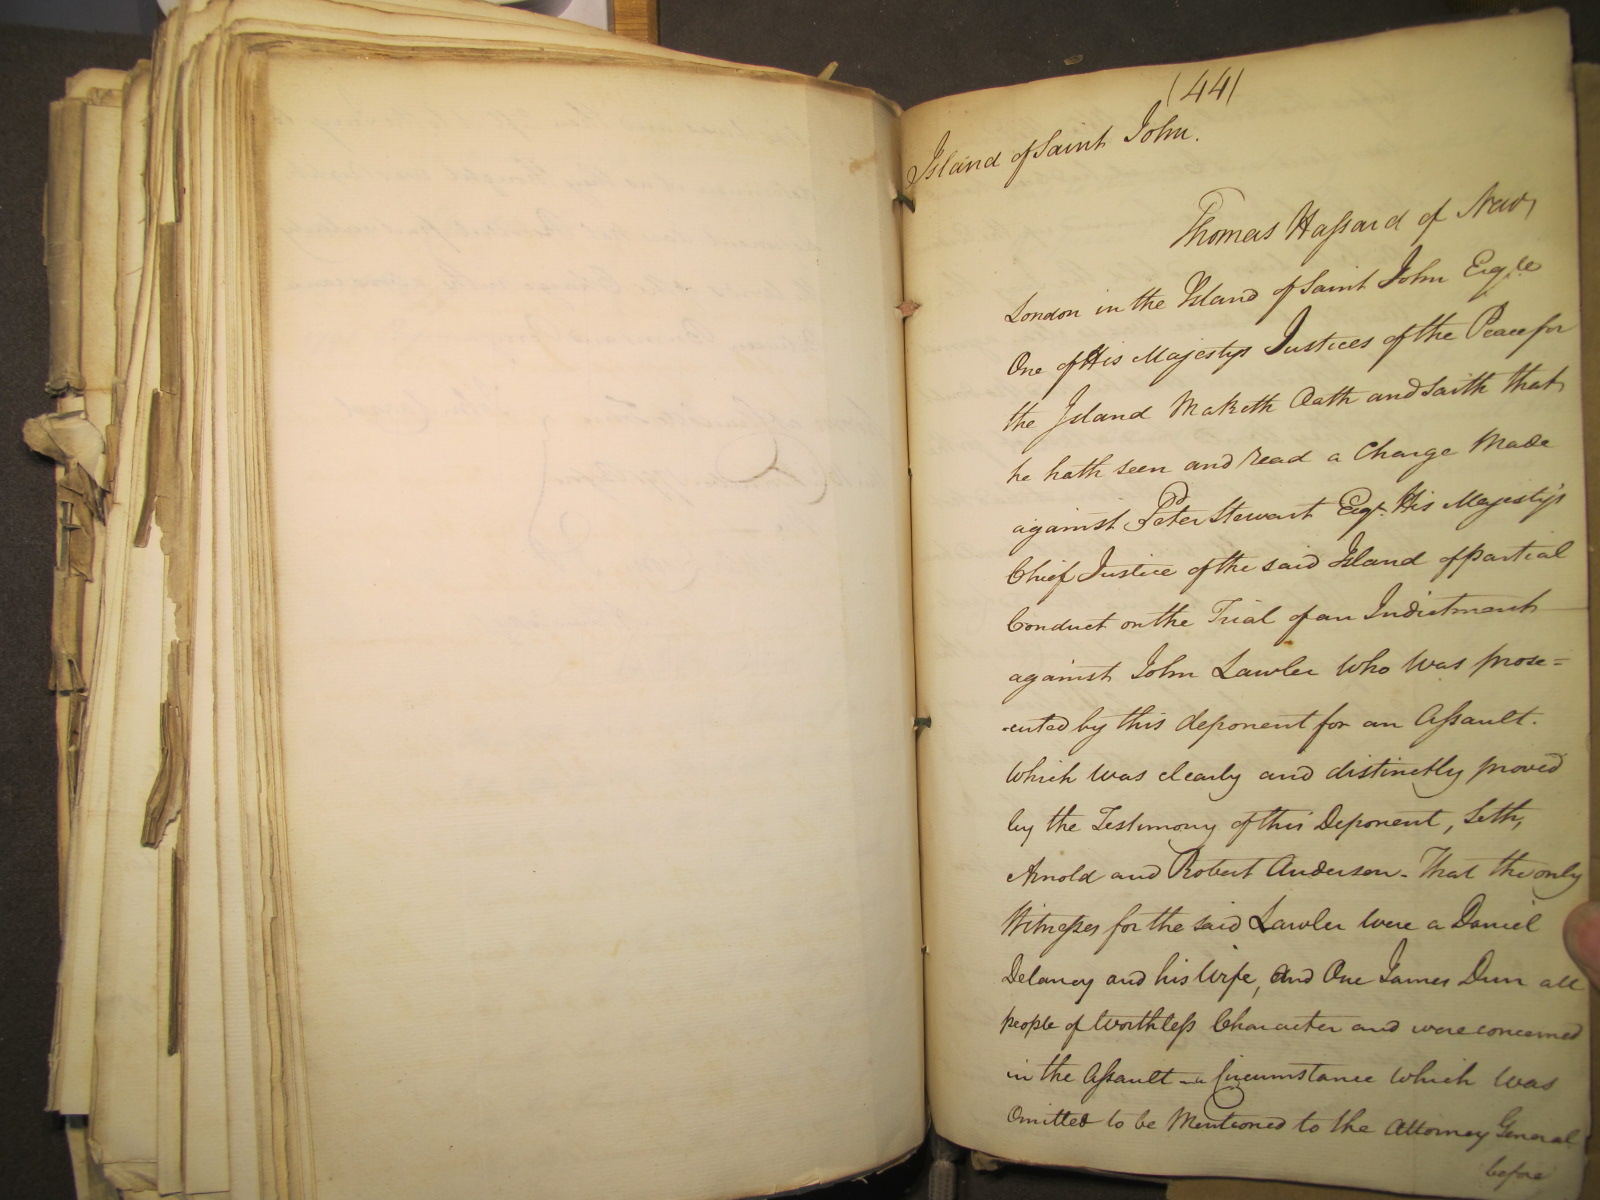 (44)
Island of Saint John.
Thomas Hassard of New
London in the Island of Saint John Esqre
One of His Majestys Justices of the Peace for
the Island Maketh Oath and Saith that
he hath seen and read a Charge Made
against Peter Stewart Esqr. His Majesty's
Chief Justice of the said Island of partial
Conduct on the Trial of an Indictment
against John Lawler who was prose=
-cuted by this deponent for an Assault.
Which was clearly and distinctly proved
by the Testimony of this Deponent, Seth,
Arnold and Robert Anderson - That the only
Witnesses for the said Lawler were a Daniel
Delaney and his Wife, and One James Dun all
people of Worthless Character and were concerned
in the Assault - a Circumstance which was
Omitted to be Mentioned to the Attorney General
before